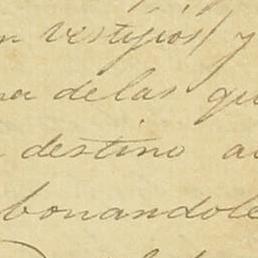 n vestijios y
na de las qu
destino a
bonandole